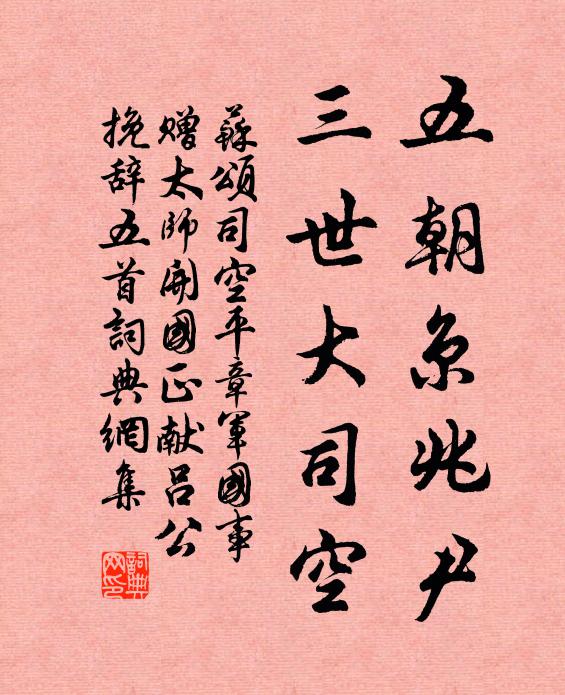 五朝京兆尹
三世大司空
蘇頌司空平章軍國事
贈太師開國正献呂公
挽辞五首詞典網集
詞典网印